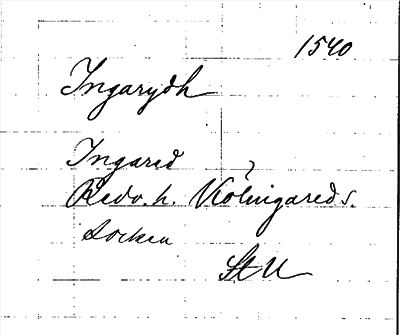 1540
Ingarydh
Ingared
Redv. h. Kölingareds.
Socken
St U